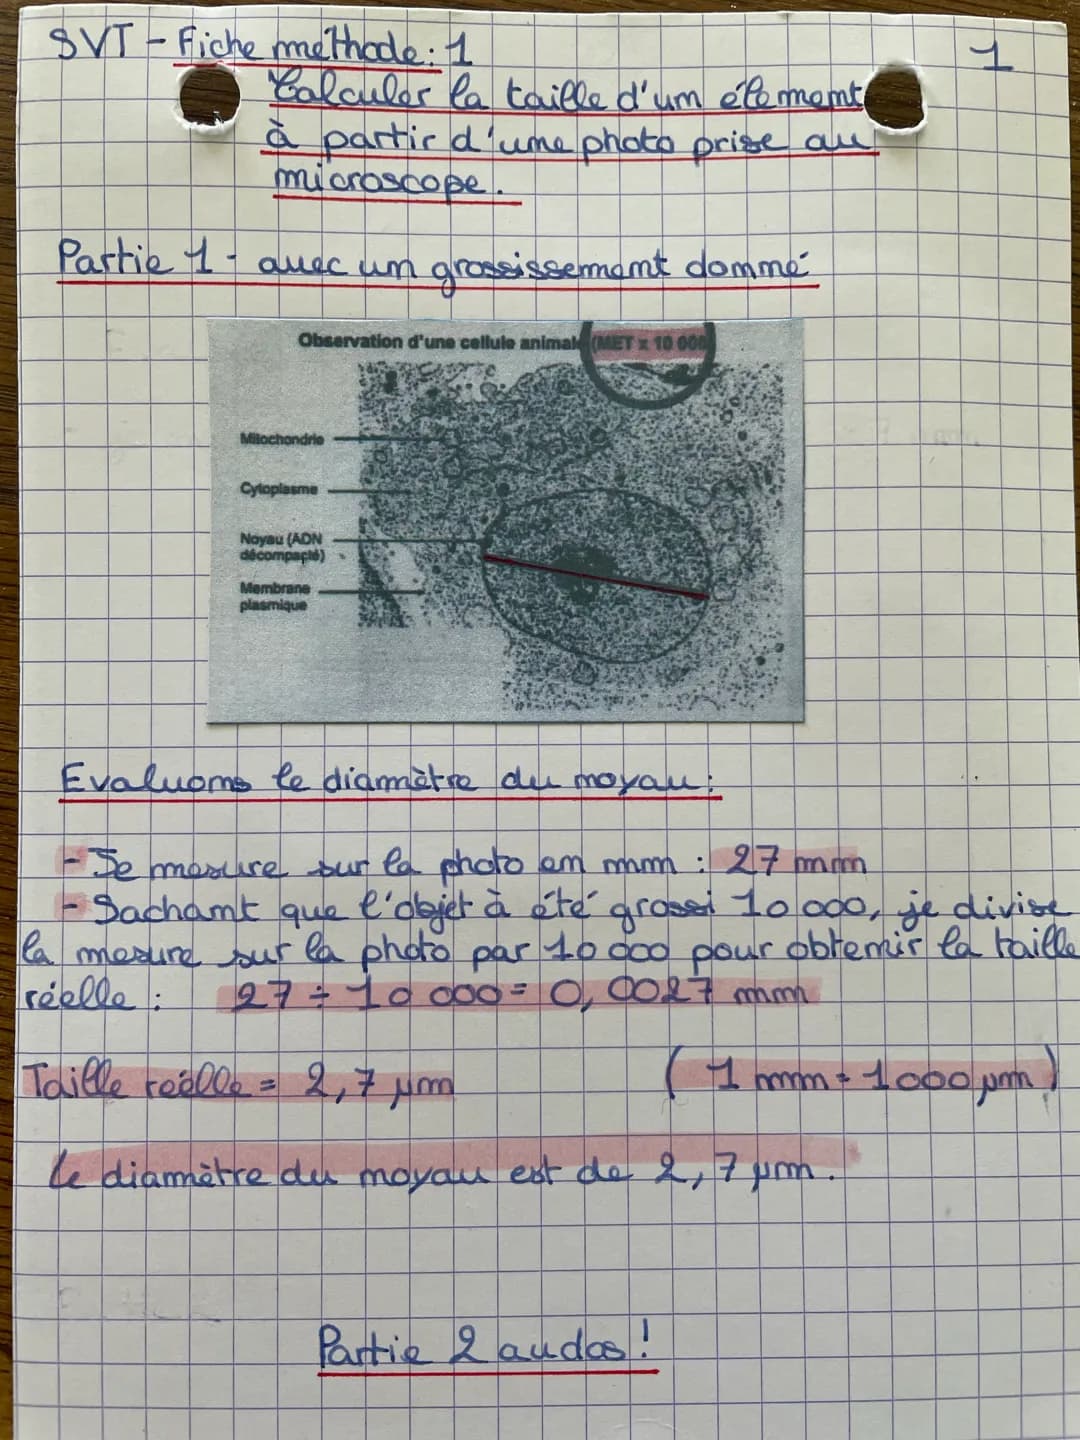 SVT - Fiche méthode : 1
1
Calculer la taille d'un élement
à partir d'une photo prise au
microscope.
Partie 1 - avec un grossissement donné
Observation d'une cellule animale (MET x 10 000
Mitochondrie
Cytoplasme
Noyau (ADN
décompacté)
Membrane
plasmique
Evaluons le diamètre du noyau :
- Je mesure sur la photo en mm : 27 mm
- Sachant que l'objet à été grossi 10 000, je divise
la mesure sur la photo par 10 000 pour obtenir la taille
réelle : 27 ÷ 10 000 = 0,0027 mm
Taille réelle = 2,7 µm ( 1 mm = 1000 µm )
Le diamètre du noyau est de 2,7 µm.
Partie 2 au dos !